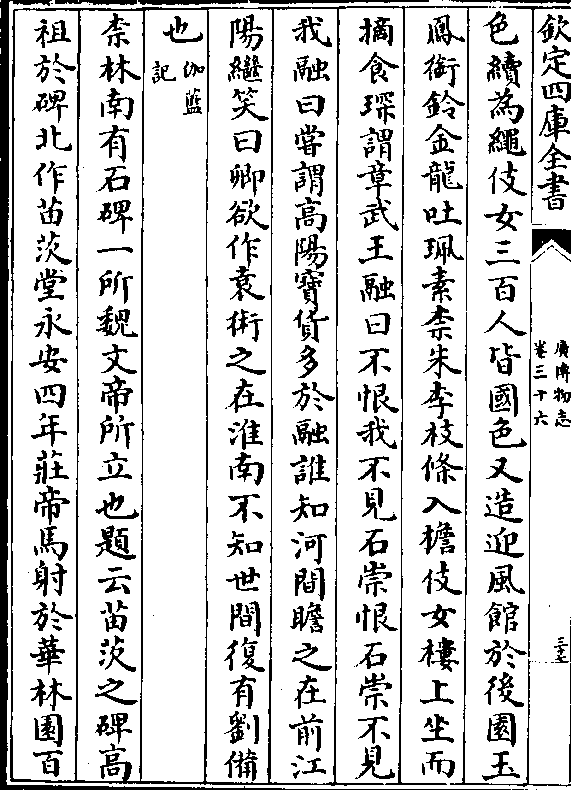 欽定四庫全書
廣博物志
卷三十六
色續為繩伎女三百人皆國色又造迎風館於後園玉
鳳銜鈴金龍吐珮素柰朱李枝條入檐伎女樓上坐而
摘食琛謂章武王融曰不恨我不見石崇恨石崇不見
我融曰嘗謂高陽寶貨多於融誰知河間瞻之在前江
陽繼笑曰卿欲作袁術之在淮南不知世間復有劉備
也伽藍
記
柰林南有石碑一所魏文帝所立也題云苗茨之碑高
祖於碑北作苗茨堂永安四年莊帝馬射於華林園百